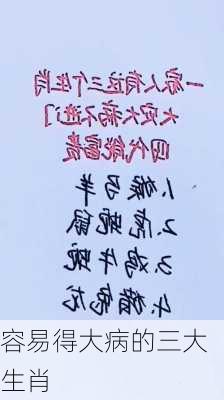 一家人有这三个生肖
大灾大病不进门
四代能富贵
1.猴马羊
2.虎蛇鼠
3.鸡牛蛇
4.猪兔龙
容易得大病的三大
生肖